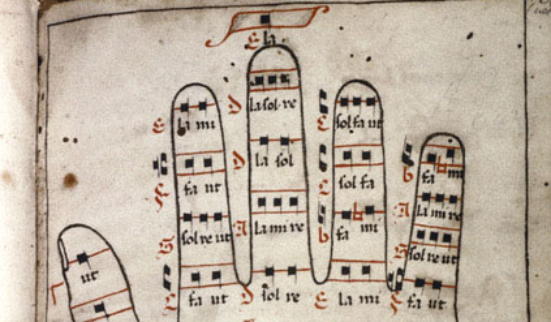 E la
la sol re
la mi
sol fa ut
la sol
fa mi
fa ut
sol fa
la mi re
sol re ut
La mi re
fa mi
sol re ut
ut
fa ut
sol re
La mi
fa ut